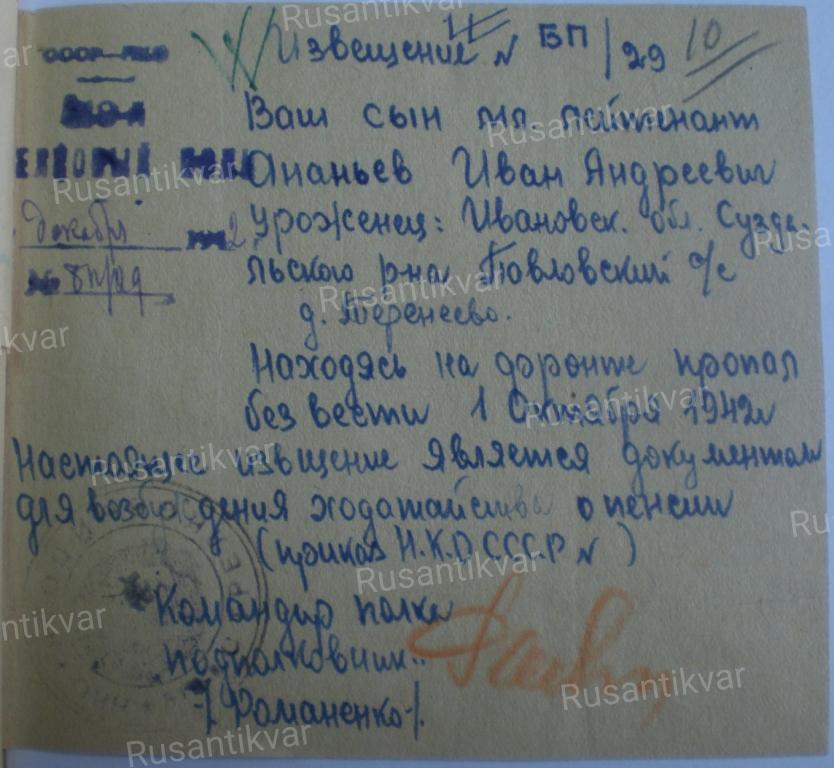 Извещение № БП/29 10
СССР
Ваш сын мл лейтенант
Ананьев Иван Андреевич
декабря 2
уроженец: Ивановск. обл. Сузда-
льского р-на Павловский с/с
№
д. Теренеево.
Находясь на форонте пропал
без вести 1 Октября 1942г
Настоящие извщение является документам
для возбуждения ходатайства о пенсии
(приказ Н.К.О СССР № )
Командир полка
подполковник..
-/. Романенко -/.
Rusantikvar
Rusantikvar
Rusantikvar
Rusantikvar
Rusantikvar
Rusantikvar
Rusantikvar
Rusantikvar
Rusantikvar
Rusantikvar